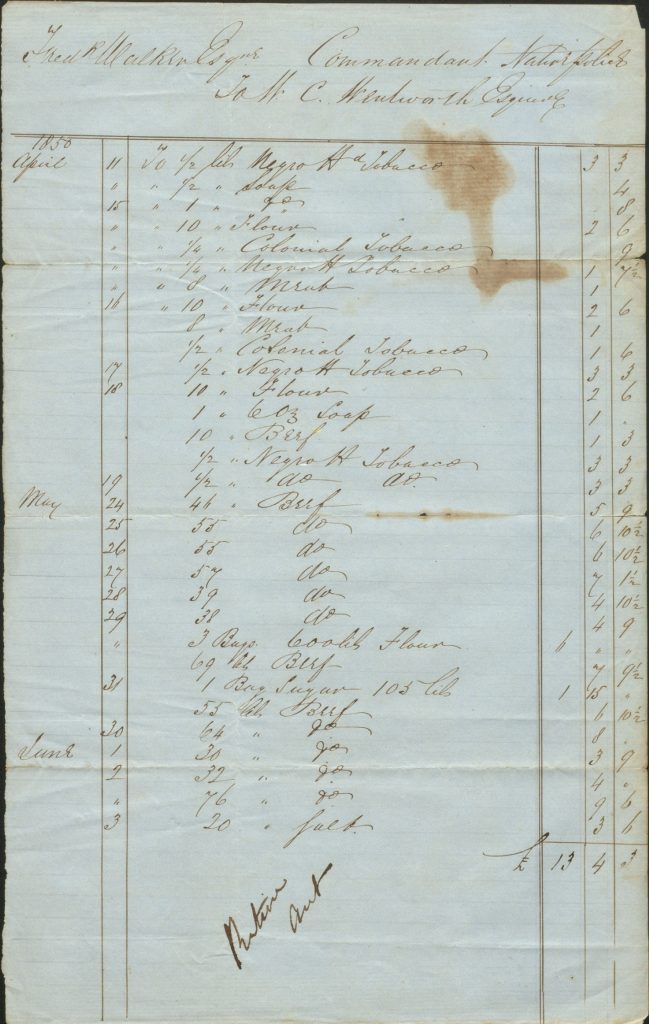 Fredk Walker Esqre Commandant Native police
To W. C. Wentworth Esquire
1850
April 11 To 1/2 lib Negro Hd Tobacco 3 3
" " 1/2 " Soap 4
15 " 1 " do 8
" " 10 " Flour 2 6
" " 1/4 " Colonial Tobacco 9
" " 1/4 " Negro H Tobacco 1 7½
" " 8 " Meat 1
16 " 10 " Flour 2 6
8 " Meat 1
1/2 " Colonial Tobacco 1 6
17 1/2 " Negro H Tobacco 3 3
18 10 " Flour 2 6
1 " 6 Oz Soap 1 "
10 " Beef 1 3
1/2 " Negro H Tobacco 3 3
19 1/2 " do do 3 3
May 24 46 " Beef 5 9
25 55 do 6 10½
26 55 do 6 10½
27 57 do 7 1½
28 39 do 4 10½
29 38 do 4 9
" 3 Bags 600 lib Flour 6 " "
69 lib Beef 7 9½
31 1 Bag Sugar 105 lib 1 15 "
55 lib Beef 6 10½
30 64 " do 8 "
June 1 30 " do 3 9
2 32 " do 4 "
" 76 " do 9 6
3 20 " Salt 3 6
£ 13 4 3